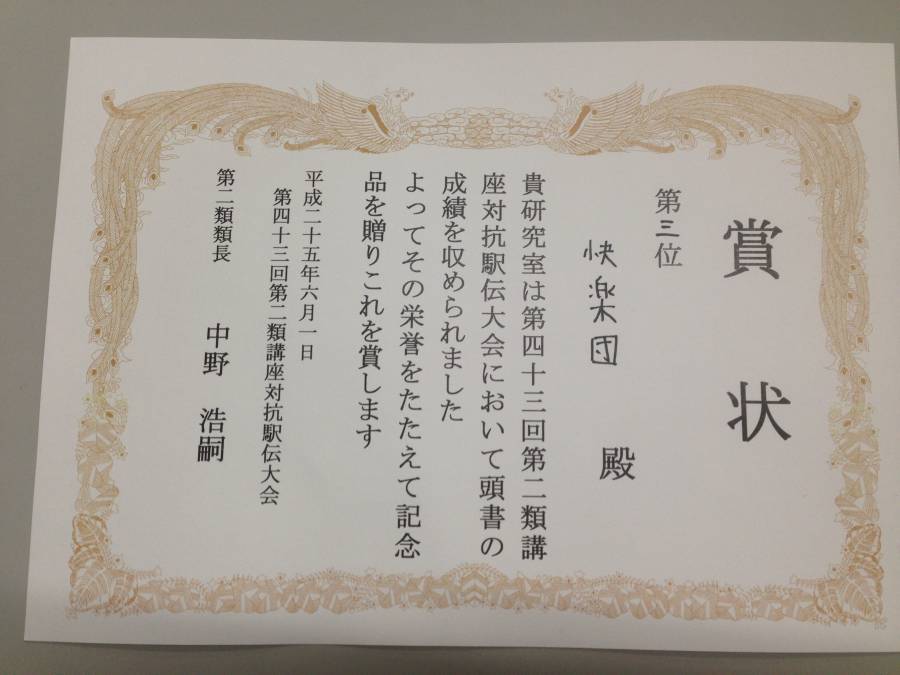 賞状
第三位
快楽団 殿
貴研究室は第四十三回第二類講
座対抗駅伝大会において頭書の
成績を収められました
よってその栄誉をたたえて記念
品を贈りこれを賞します
平成二十五年六月一日
第四十三回第二類講座対抗駅伝大会
第二類類長 中野 浩嗣